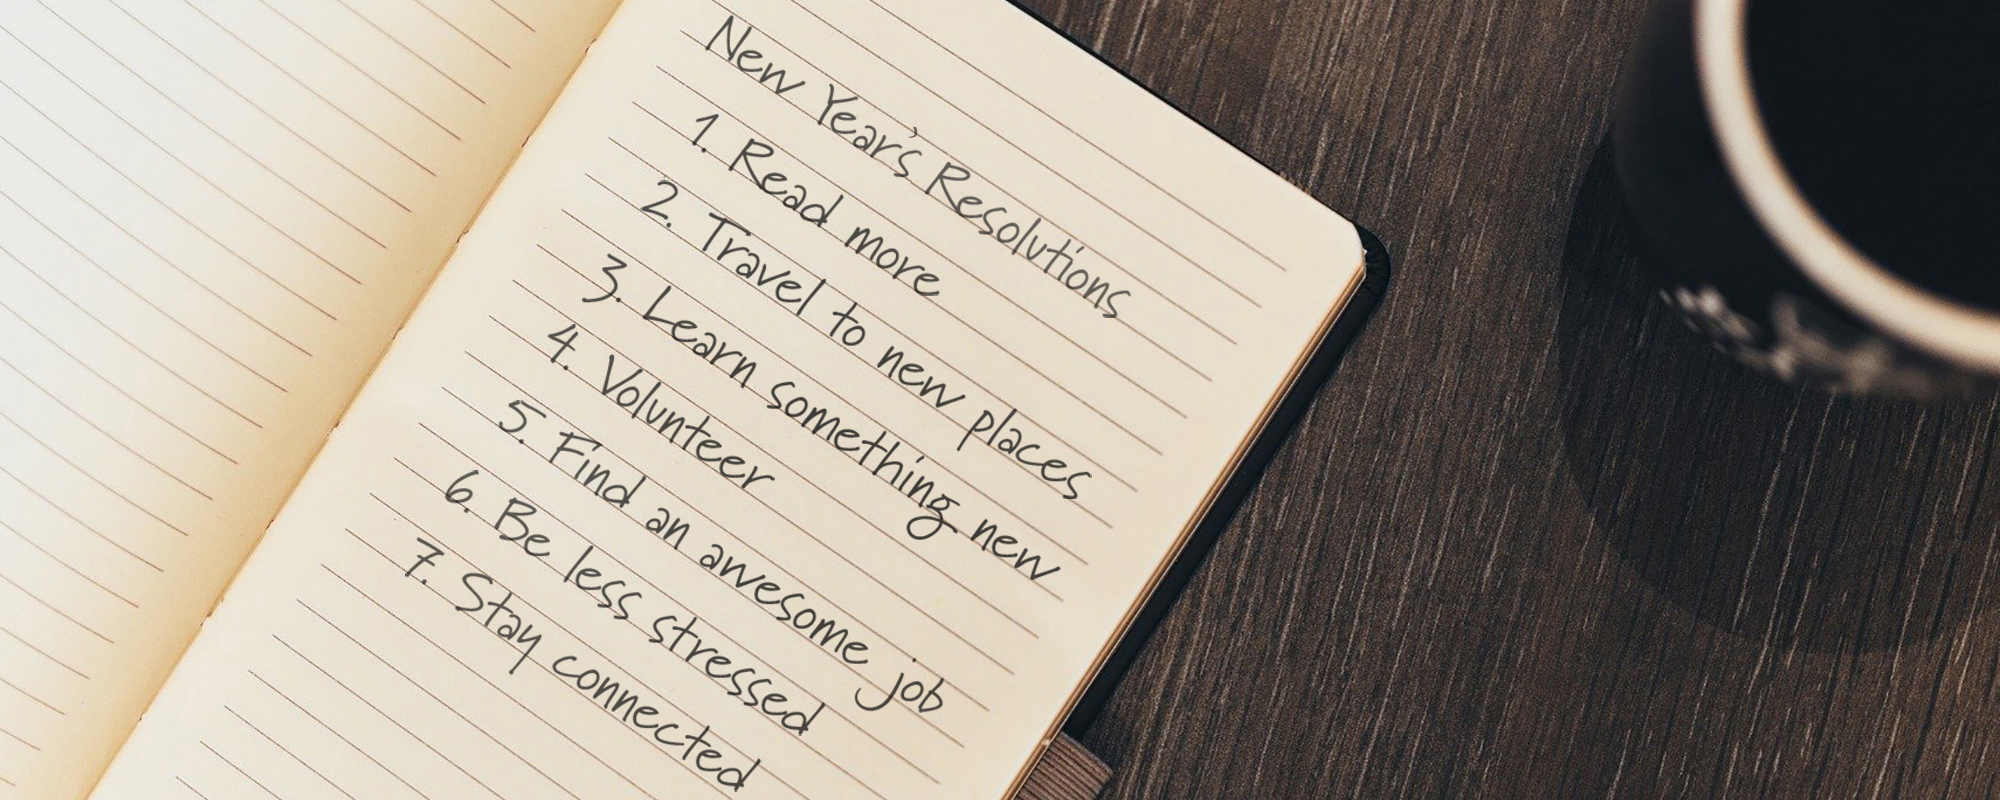 New Year's Resolutions
1. Read more
2. Travel to new places
3. Learn something new
4. Volunteer
5. Find an awesome job
6. Be less stressed
7. Stay connected